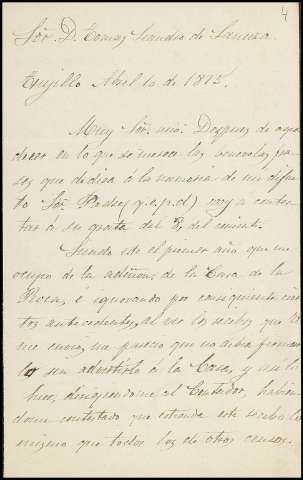 4
Sor. D. Tomas Leandro de
Trujillo Abril 10 de 1875.
Muy Sor. mio. Despues de agra
decer en lo que se merece las fra
ses que dedica á la memoria de mi difun
to Sor. Padre (q. e. p. d) voy á contes
tar á su grata del 8, del corrient.
Siendo este el primer año que me
ocupo de la admon. de la Casa de la
Roca, é ignorando por consiguiente cier
tos antecedentes, al ver los recibos que V.
me envia, me parecio que no debia firmar
los sin advertirlo á la Casa, y asi lo
hice, dirigiendome al Contador, habien
dome contestado que estiende este recibo lo
mismo que todos los de otros censos.